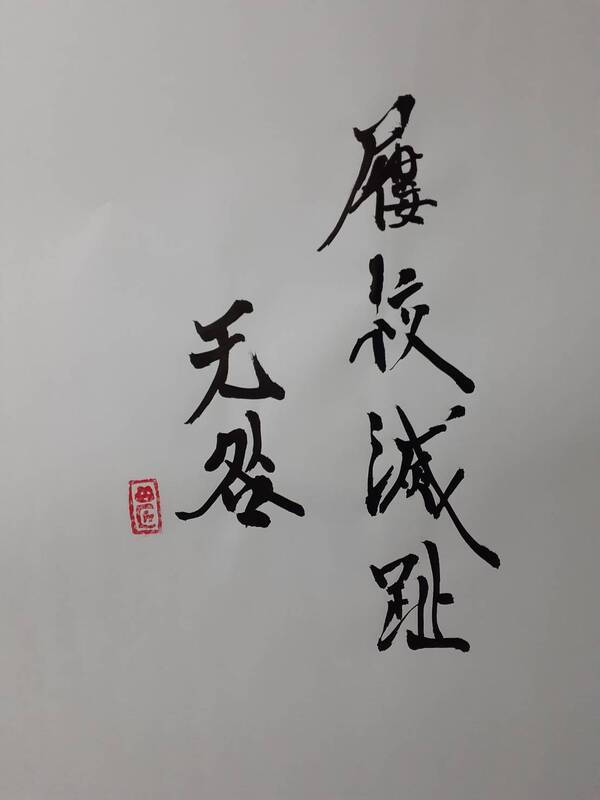 屨校滅趾
无咎